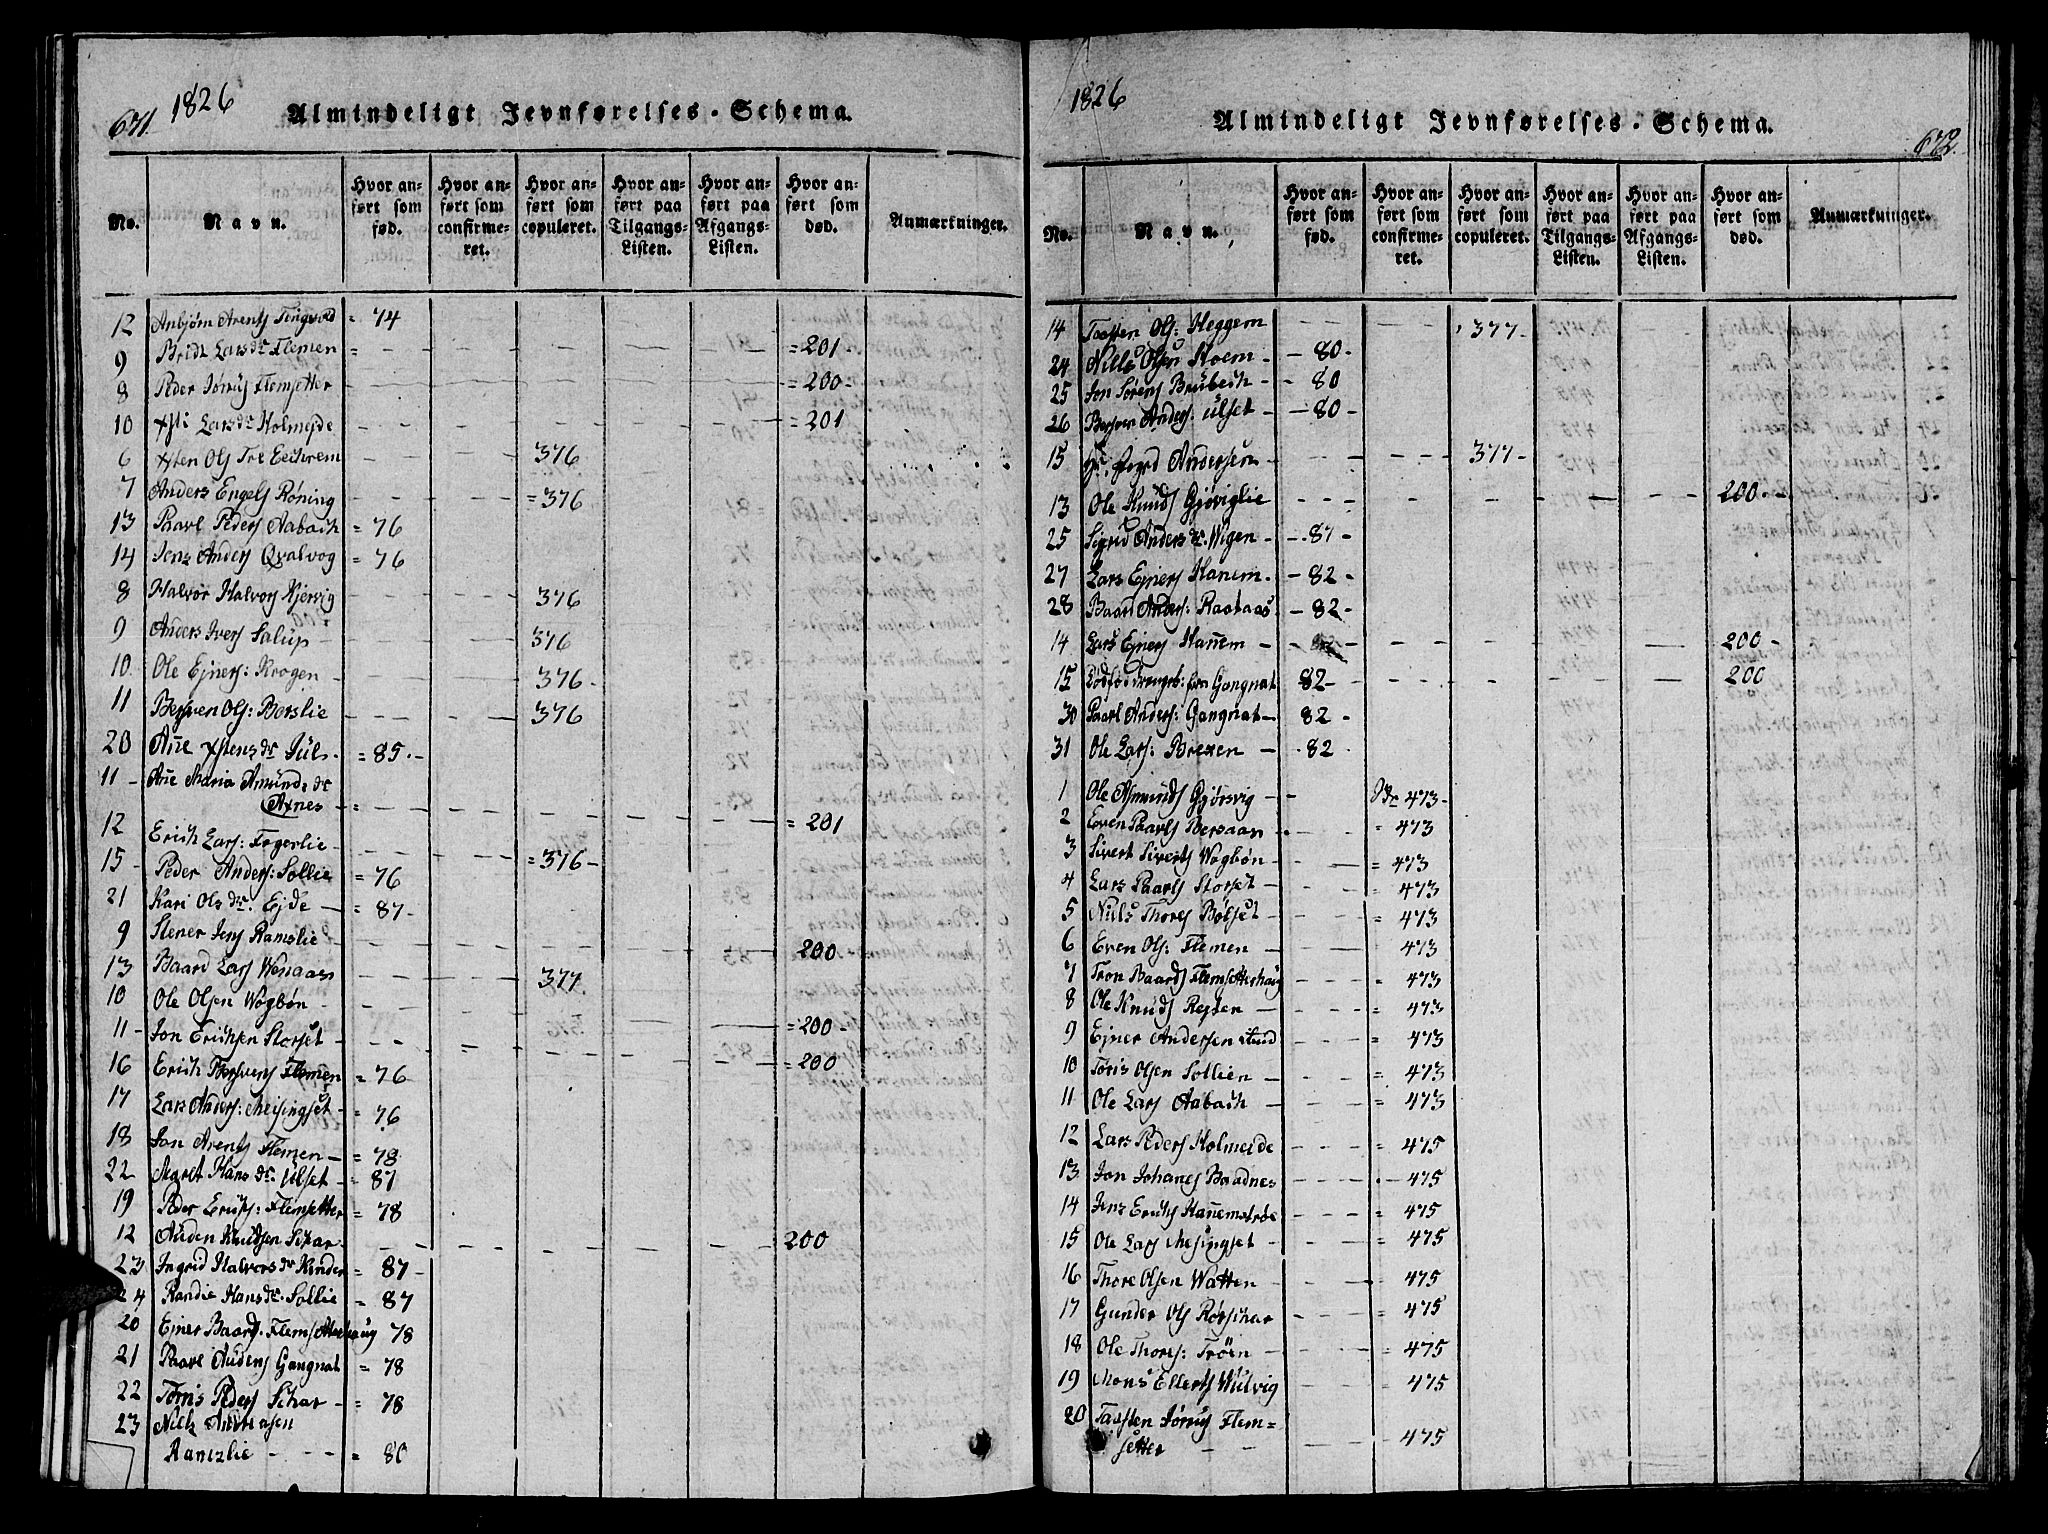 671. 1826 Almindeligt Jevnførelses-Schema.
No. Navn. Hvor anført som fød. Hvor anført som confirmeret. Hvor anført som copuleret. Hvor anført paa Tilgangs-Listen. Hvor anført paa Afgangs-Listen. Hvor anført som død. Anmærkninger.
12 Anbjørn Arents Tingvold = 74
9 Bridt Larsdr Flemen = 201
8 Peder Jønus Flemsetter = 200
10 Larsdr Holmejde = 201
6 Ols Tre Eechrem 376
7 Anders Engels Røning = 376
13 Paavl Peders Aabach = 76
14 Jens Anders Qvalvog = 76
8 Halvor Halvors Kjervig 376
9 Anders Ivers Salup 376
10 Ole Ejners: Krogen 376
11 Ols: Berslie 376
20 Añe Juls = 85
11 Añe Maria Amundsdr
Axnes = 201
12 Erich Lars: Fogerlie = 376
15 Peder Anders: Sollie = 76
21 Kari Olsdr. Ejde = 87
9 Stener Jens Ramslie 200
13 Baard Lars Wenaasen 377
10 Ole Olsen Wogbøn = 200
11 Jon Erichsen Storset = 200
16 Erich Flemen = 76
17 Lars Anders: Meisingset = 76
18 Jon Arents Flemen = 78
22 Magret Hansdr. Ulset = 87
19 Peder Erichs: Flemsetter = 78
12 Auden Knudsen Schar 200
23 Ingrid Halvorsdr Kinder = 87
24 Randie Hansdr. Sollie = 87
20 Ejner Baards. Flemsetterhaug 78
21 Paavl Audens Gangnat = 78
22 Tøris Peders Schar = 78
23 Niels Andreasen
Ranezlie = 80
1826 Almindeligt Jevnførelses-Schema. 672.
No. Navn. Hvor anført som fød. Hvor anført som confirmeret. Hvor anført som copuleret. Hvor anført paa Tilgangs-Listen. Hvor anført paa Afgangs-Listen. Hvor anført som død. Anmærkninger.
14 Tosten Ols: Heggem 377
24 Nills Olsen Hoem 80
25 Jon Sørens Brubech 80
26 Anders: Ulset 80
15 Andersen 377
13 Ole Knuds Gjøviglie 200
25 Sigrid Andersdr. Wigen 87
27 Lars Ejners Hanem 82
28 Baard Anders: Raataas 82
14 Lars Ejners Hañem 200
15 Dødfød Drengeb: fra Gangnat 82 200
30 Paavl Anders: Gangnat 82
31 Ole Lars: Brexen 82
1 Ole Asmunds Gjørsvig 473
2 Even Paavls Bersaan = 473
3 Sivert Siverts Wogbøn = 473
4 Lars Paavls Storset = 473
5 Niels Thores Bølset = 473
6 Even Ols: Flemen 473
7 Tron Baards Flemsetterhaug = 473
8 Ole Knuds Resten = 473
9 Ejner Andersen Sund = 473
10 Tøris Olsen Sollien = 473
11 Ole Lars Aabach = 473
12 Lars Peders Holmejde = 475
13 Jon Johanes Baadnes 475
14 Jens Erichs Hañemstrøe = 475
15 Ole Lars Mesingset = 475
16 Thore Olsen Watten = 475
17 Gunder Ols Rørschar = 475
18 Ole Thores: Trøen = 475
19 Mons Ellerts Wulvig = 475
20 Tarsten Jønus Flem=
setter 475